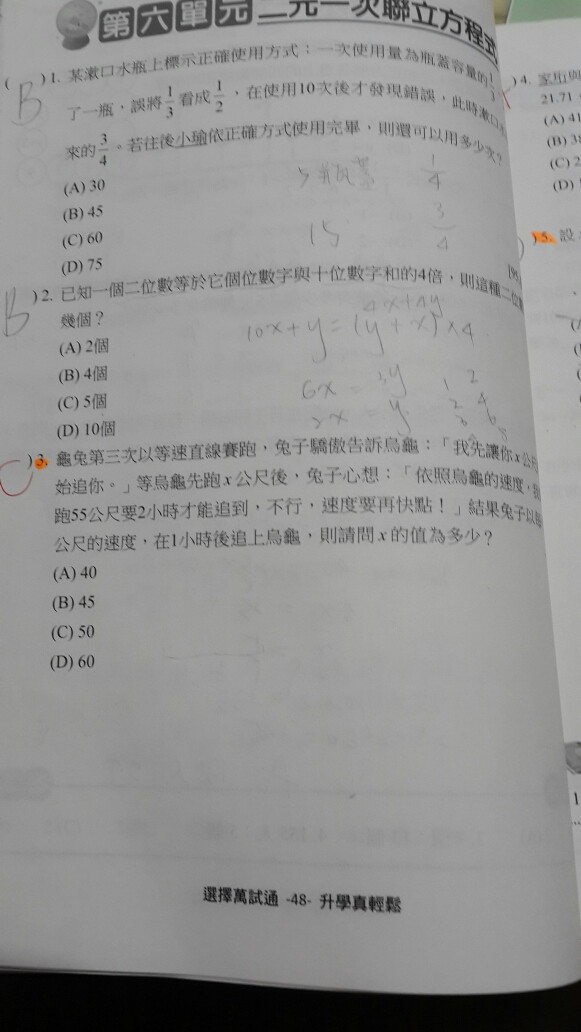 第六單元 二元一次聯立方程式
( B )1. 某漱口水瓶上標示正確使用方式:一次使用量為瓶蓋容量的1/3
了一瓶,誤將1/3看成1/2,在使用10次後才發現錯誤,此時漱口水
來的3/4。若往後小瑜依正確方式使用完畢,則還可以用多少次?
(A) 30
(B) 45
(C) 60
(D) 75
5瓶蓋 1/4
15 3/4
B )2. 已知一個二位數等於它個位數字與十位數字和的4倍,則這種二位數
幾個?
(A) 2個
(B) 4個
(C) 5個
(D) 10個
4x+4y
10x+y=(y+x)×4
6x=3y
2x=y
1 2
2 4
3 6
4 8
C )3. 龜兔第三次以等速直線賽跑,兔子驕傲告訴烏龜:「我先讓你x公
始追你。」等烏龜先跑x公尺後,兔子心想:「依照烏龜的速度,
跑55公尺要2小時才能追到,不行,速度要再快點!」結果兔子以
公尺的速度,在1小時後追上烏龜,則請問x的值為多少?
(A) 40
(B) 45
(C) 50
(D) 60
選擇萬試通 -48- 升學真輕鬆
)4. 家珩與
21.71
(A) 41
(B) 3
(C) 2
(D)
)5. 設